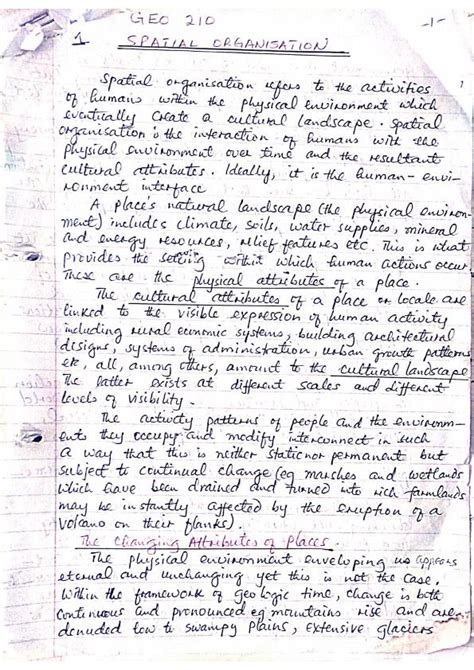 GEO 210
-1-
1
SPATIAL ORGANISATION
Spatial organisation refers to the activities
of humans within the physical environment which
eventually create a cultural landscape. Spatial
organisation is the interaction of humans with the
physical environment over time and the resultant
cultural attributes. Ideally, it is the human-envi-
ronment interface
A place's natural landscape (the physical environ-
ment) includes climate, soils, water supplies, mineral
and energy resources, relief features etc. This is what
provides the setting within which human actions occur
These are the physical attributes of a place.
The cultural attributes of a place or locale are
linked to the visible expression of human activity
including rural economic systems, building architectural
designs, systems of administration, urban growth patterns
etc, all, among others, amount to the cultural landscape
The latter exists at different scales and different
levels of visibility.
The activity patterns of people and the environm-
ents they occupy and modify interconnect in such
a way that this is neither static nor permanent but
subject to continual change (eg marshes and wetlands
which have been drained and turned into rich farmlands
may be instantly affected by the eruption of a
volcano on their flanks).
The Changing Attributes of Places.
The physical environment enveloping us appears
eternal and unchanging yet this is not the case.
Within the framework of geologic time, change is both
continuous and pronounced eg mountains rise and are
denuded low to swampy plains, extensive glaciers